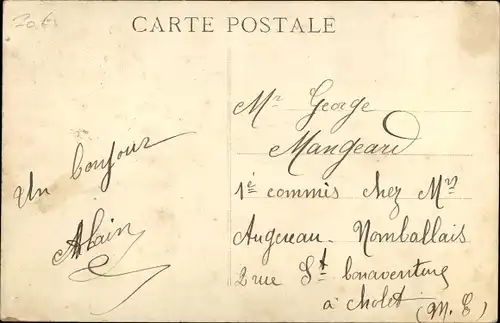 20 €
CARTE POSTALE
Un bonjour
Alain
Mr George
Mangeard
1é commis chez Mrs
Augereau. Nomballais
2 rue St. bonaventure
à cholet (M. L)